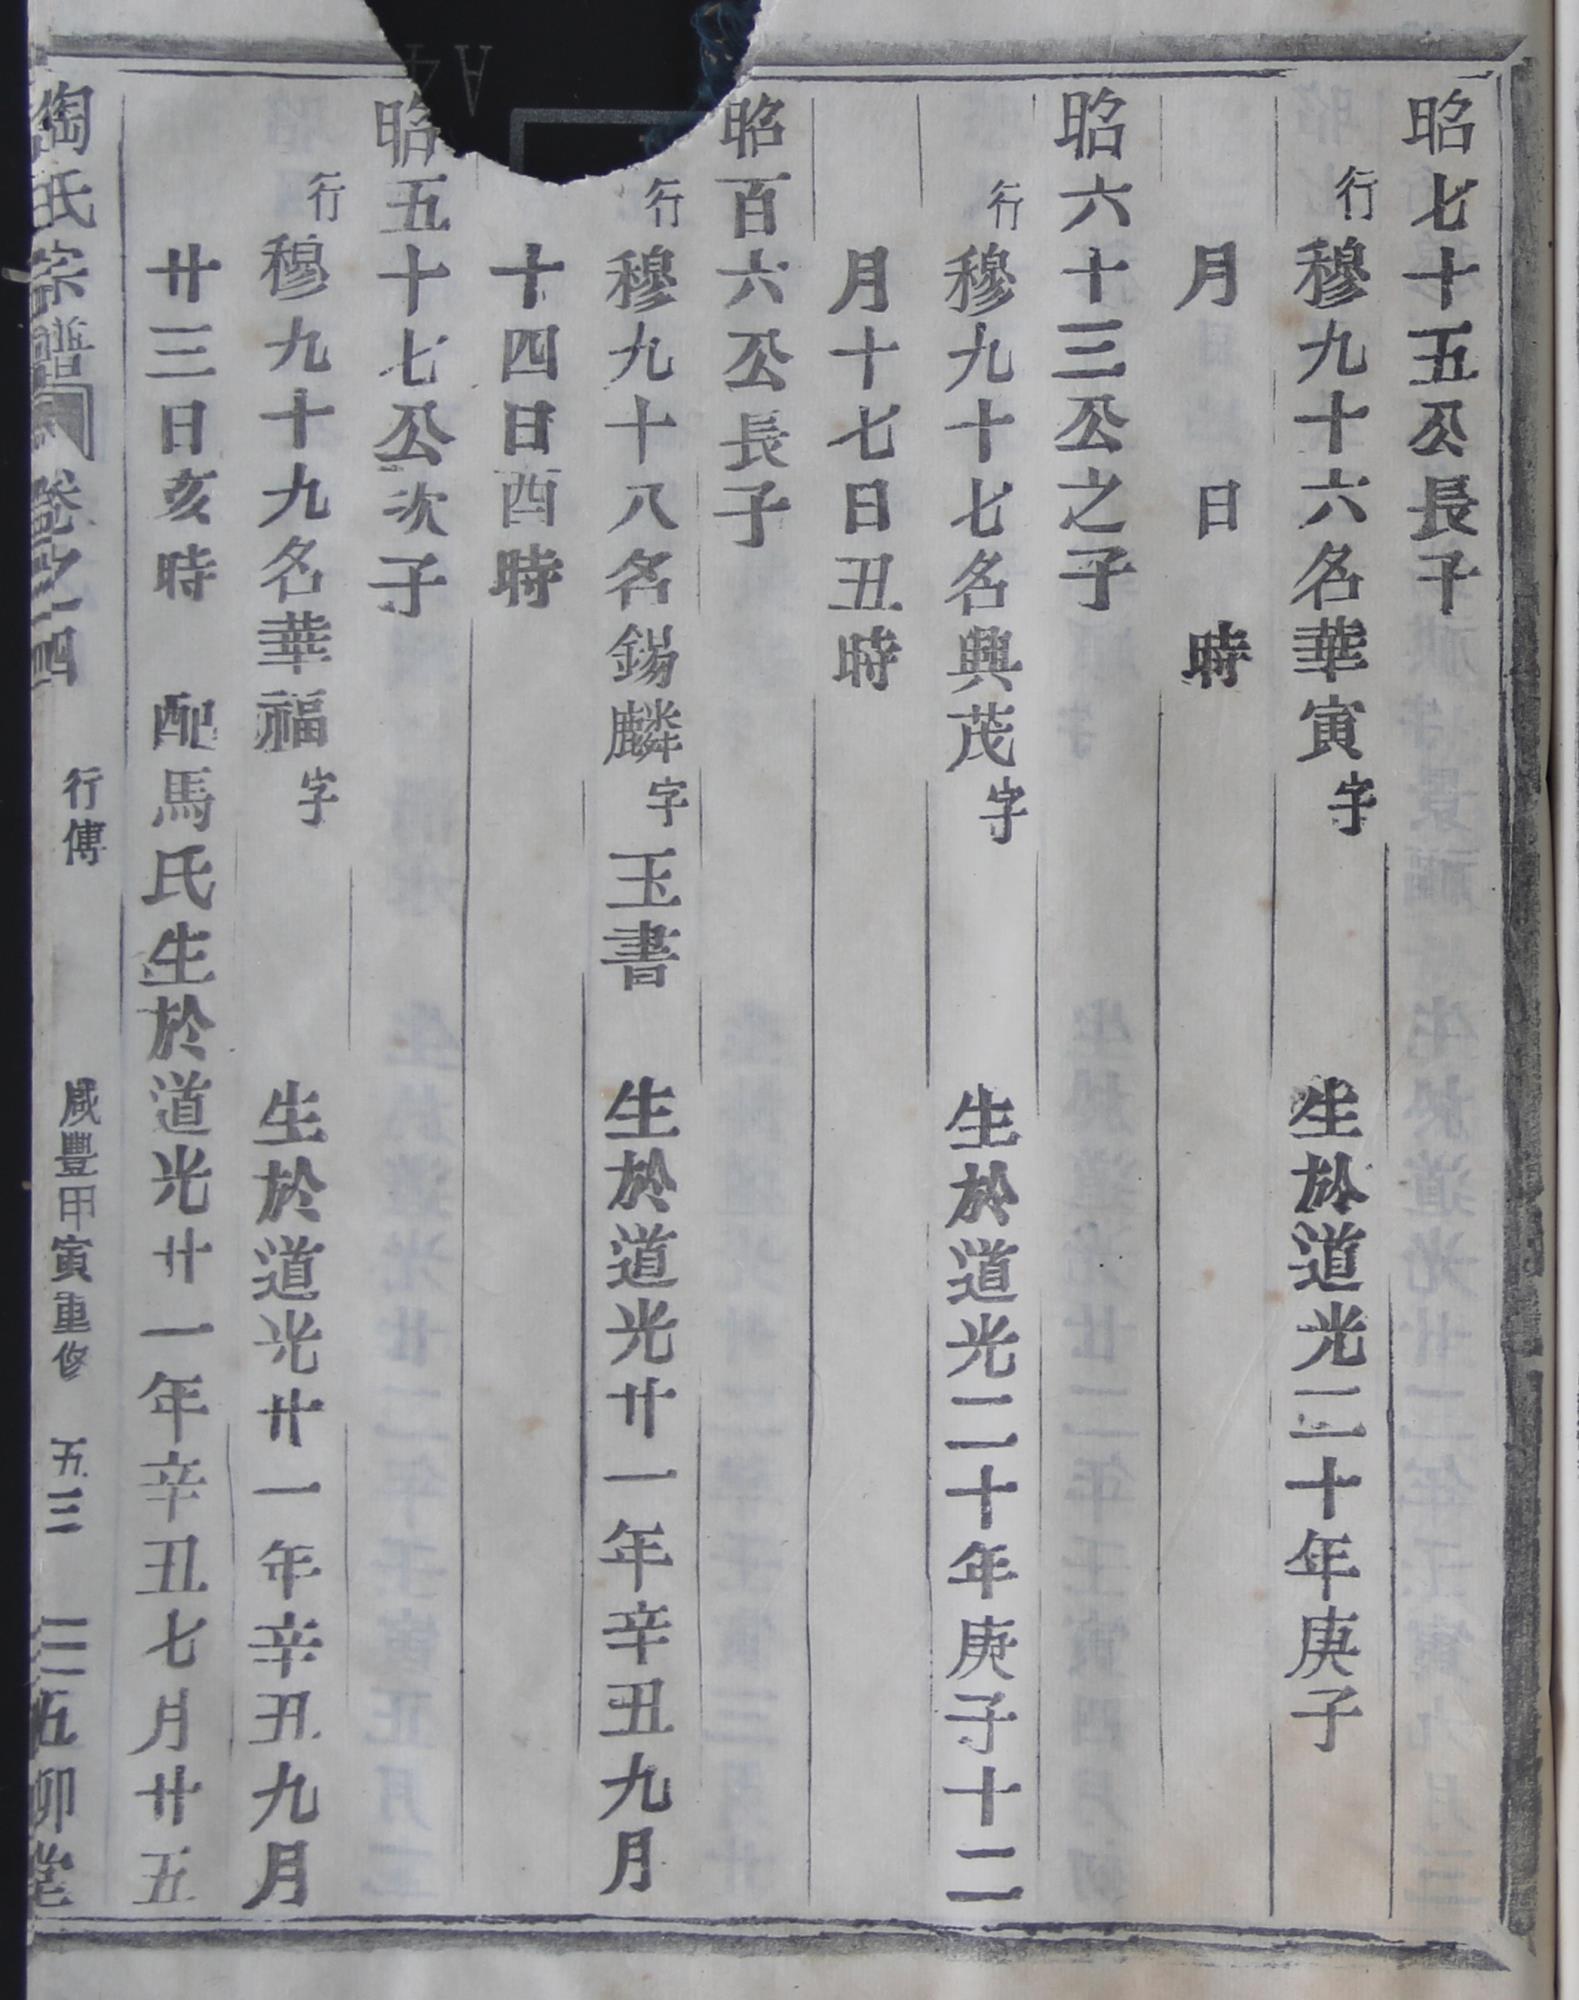 昭七十五公長子
行穆九十六名華寅字 生於道光二十年庚子
月 日 時
昭六十三公之子
行穆九十七名興茂字 生於道光二十年庚子十二
月十七日丑時
昭百六公長子
行穆九十八名錫麟字玉書 生於道光廿一年辛丑九月
十四日酉時
昭五十七公次子
行穆九十九名華福字 生於道光廿一年辛丑九月
廿三日亥時 配馬氏生於道光廿一年辛丑七月廿五
陶氏宗譜 卷之四 行傳 咸豐甲寅重修 五三 五柳堂